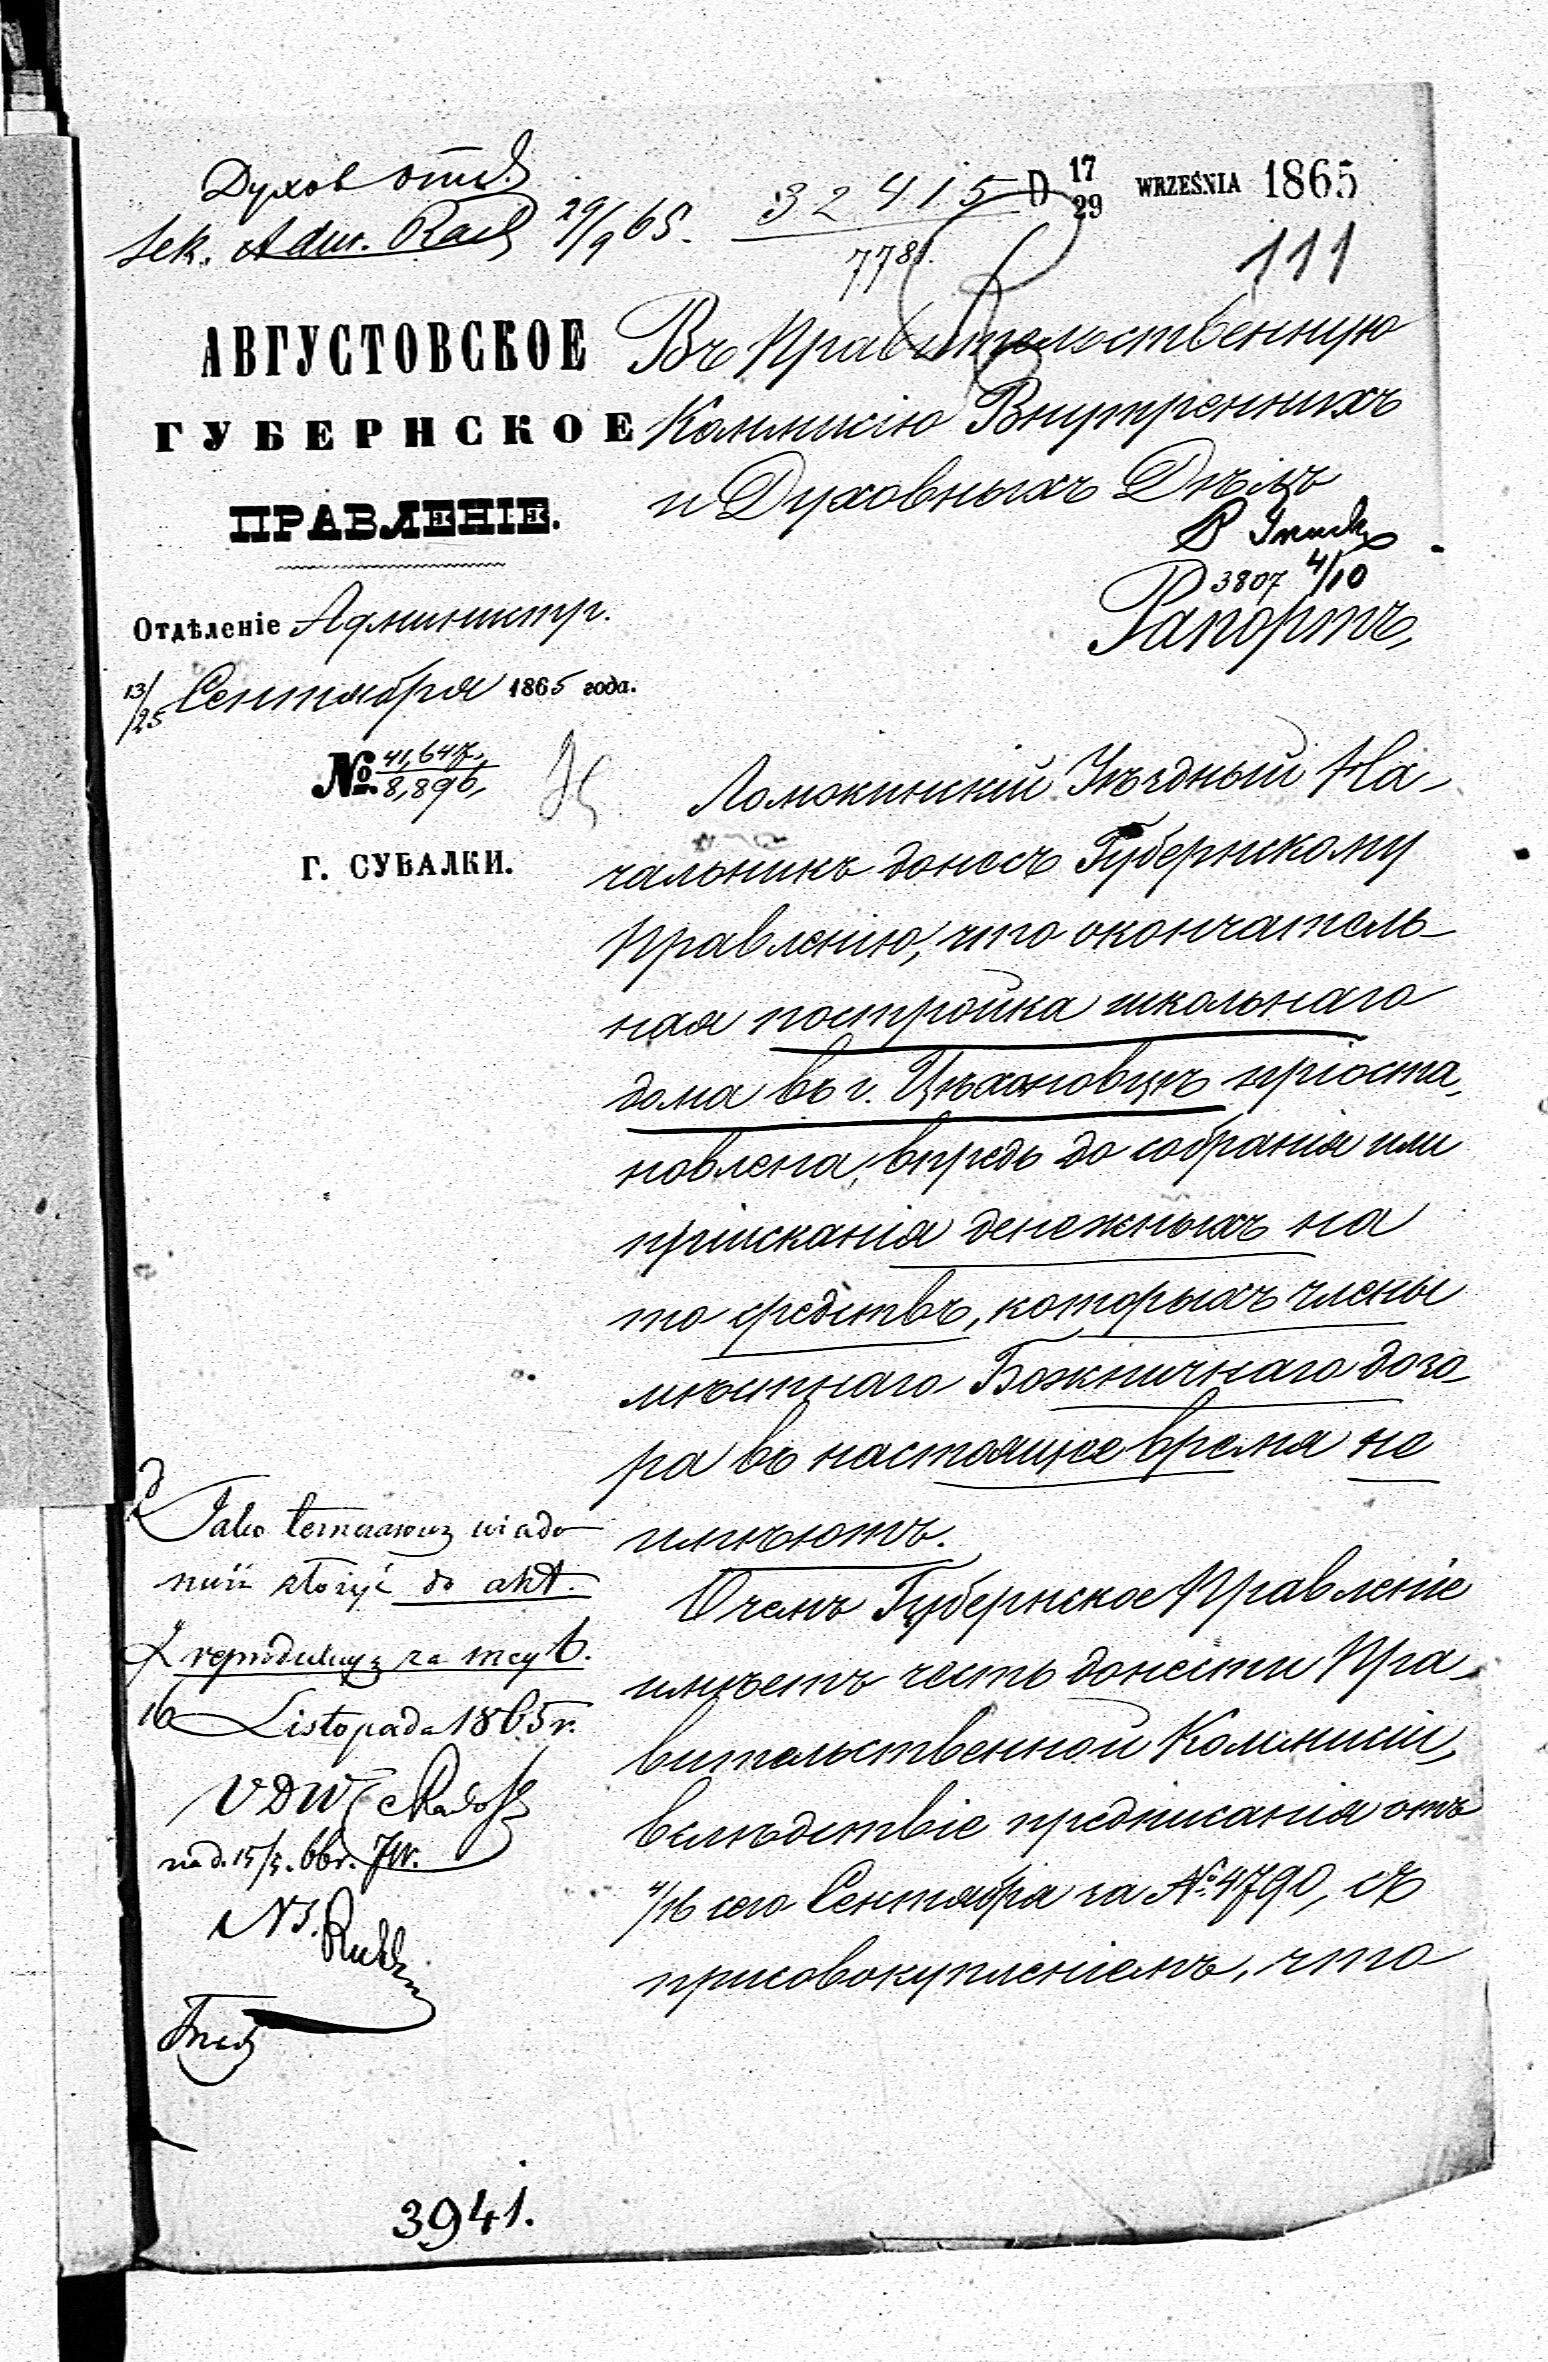 Духов отд.
Sek. Adm. Rach 29/9 65.
32415
7781.
D 17/29 WRZEŚNIA 1865
111
АВГУСТОВСКОЕ
ГУБЕРНСКОЕ
ПРАВЛЕНІЕ.
Отдѣленіе Администр.
13/25 Сентября 1865 года.
№ 41,647, / 8,896,
Г. СУВАЛКИ.
Въ Правительственную
Коммисію Внутреннихъ
и Духовныхъ Дѣлъ
3807 4/10
Рапортъ,
Ломжинскій Уѣздный На-
чальникъ донесъ Губернскому
Правленію, что окончатель-
ная постройка школьнаго
дома въ г. Цѣхановцѣ пріоста-
новлена, впредь до собранія или
пріисканія денежныхъ на
то средствъ, которыхъ члены
мѣстнаго Божничнаго дозо-
ра въ настоящее время не
имѣютъ.
О чемъ Губернское Правленіе
имѣетъ честь донести Пра-
вительственной Коммисіи,
вслѣдствіе предписанія отъ
4/16 сего Сентября за № 4790, съ
присовокупленіемъ, что
Jako wiado
złożyć do akt.
za mcy 6.
16 Listopada 1865 r.
VDW
NS.
3941.